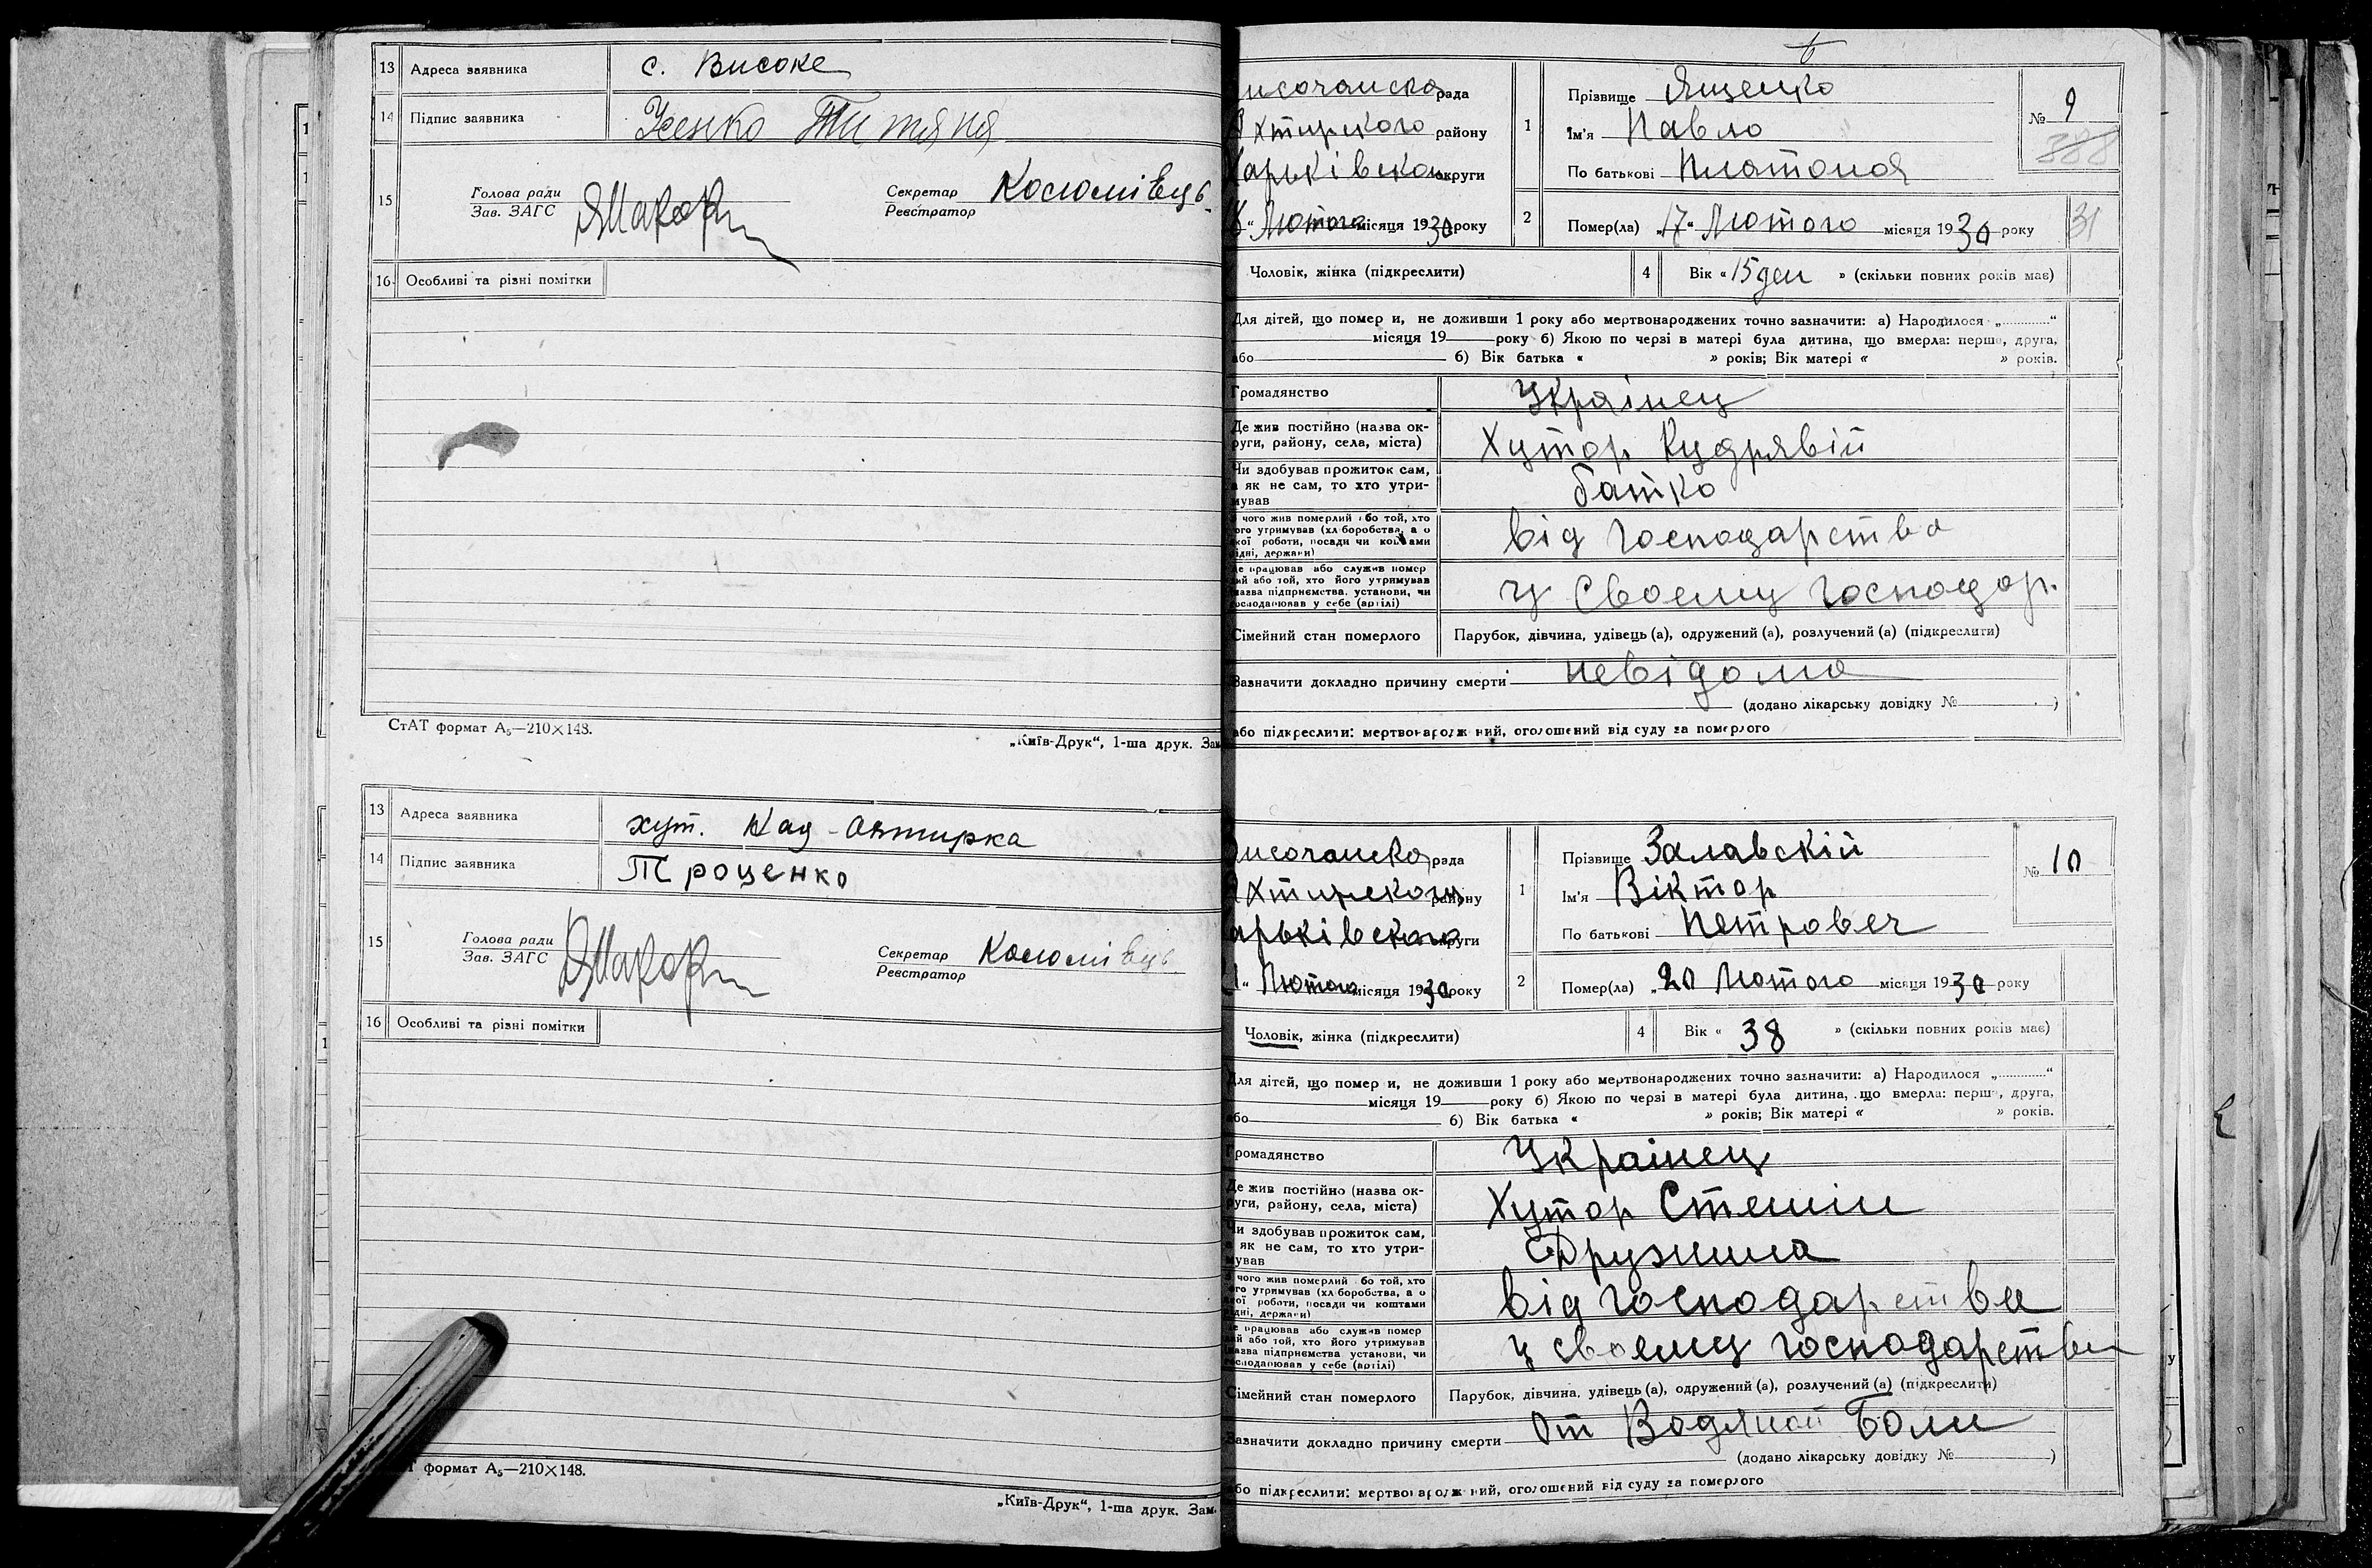 13 Адреса заявника с. Високе
14 Підпис заявника Усенко Титяня
15 Голова ради
Зав. ЗАГС
Секретар Коломієць
Реєстратор
16 Особливі та різні помітки
СтАТ формат А₅—210×148.
„Київ-Друк“, 1-ша друк. Зам
13 Адреса заявника хут. Над-Охтирка
14 Підпис заявника Троценко
15 Голова ради
Зав. ЗАГС
Секретар Коломієць
Реєстратор
16 Особливі та різні помітки
формат А₅—210×148.
„Київ-Друк“, 1-ша друк. Зам.
исочанска рада
хтирского району
Харьківскои округи
Лютого місяця 1930 року
1 Прізвище Ященко
Ім'я Павло
По батькові Платоноя
№ 9
388
2 Помер(ла) „17“ Лютого місяця 1930 року
31
Чоловік, жінка (підкреслити)
4 Вік «15 ден» (скільки повних років має)
Для дітей, що помер и, не доживши 1 року або мертвонароджених точно зазначити: а) Народилося „............“
місяця 19 року б) Якою по черзі в матері була дитина, що вмерла: перша, друга,
або б) Вік батька « » років; Вік матері « » років.
Громадянство Украінец
Де жив постійно (назва ок-
руги, району, села, міста) Хутор Кудрявій
Чи здобував прожиток сам,
а як не сам, то хто утри-
мував Батко
чого жив померлий або той, хто
його утримував (хліборобства, а о
якої роботи, посади чи коштами
рідні, держави) від господарства
Де працював або служив помер
лий або той, хто його утримував
назва підприємства, установи, чи
господарював у себе (артілі) у своему господар.
Сімейний стан померлого Парубок, дівчина, удівець (а), одружений (а), розлучений (а) (підкреслити)
Зазначити докладно причину смерти невідома
(додано лікарську довідку № )
або підкреслити: мертвонароджений, оголошений від суду за померлого
исочанска рада
хтирского району
арьківского округи
Лютого місяця 1930 року
1 Прізвище Залавскій
Ім'я Віктор
По батькові Петровеч
№ 10
2 Помер(ла) „20 Лютого місяця 1930 року
Чоловік, жінка (підкреслити)
4 Вік « 38 » (скільки повних років має)
Для дітей, що помер и, не доживши 1 року або мертвонароджених точно зазначити: а) Народилося „............“
місяця 19 року б) Якою по черзі в матері була дитина, що вмерла: перша, друга,
або б) Вік батька « » років; Вік матері « » років.
Громадянство Украінец
Де жив постійно (назва ок-
руги, району, села, міста) Хутор Стенін
Чи здобував прожиток сам,
а як не сам, то хто утри-
мував Дружина
чого жив померлий або той, хто
його утримував (хліборобства, а о
якої роботи, посади чи коштами
рідні, держави) від господарства
Де працював або служив помер
лий або той, хто його утримував
назва підприємства установи, чи
господарював у себе (артілі) у своему господарстви
Сімейний стан померлого Парубок, дівчина, удівець (а), одружений (а), розлучений (а) (підкреслити)
Зазначити докладно причину смерти От Водяной Боли
(додано лікарську довідку № )
або підкреслити: мертвонароджений, оголошений від суду за померлого